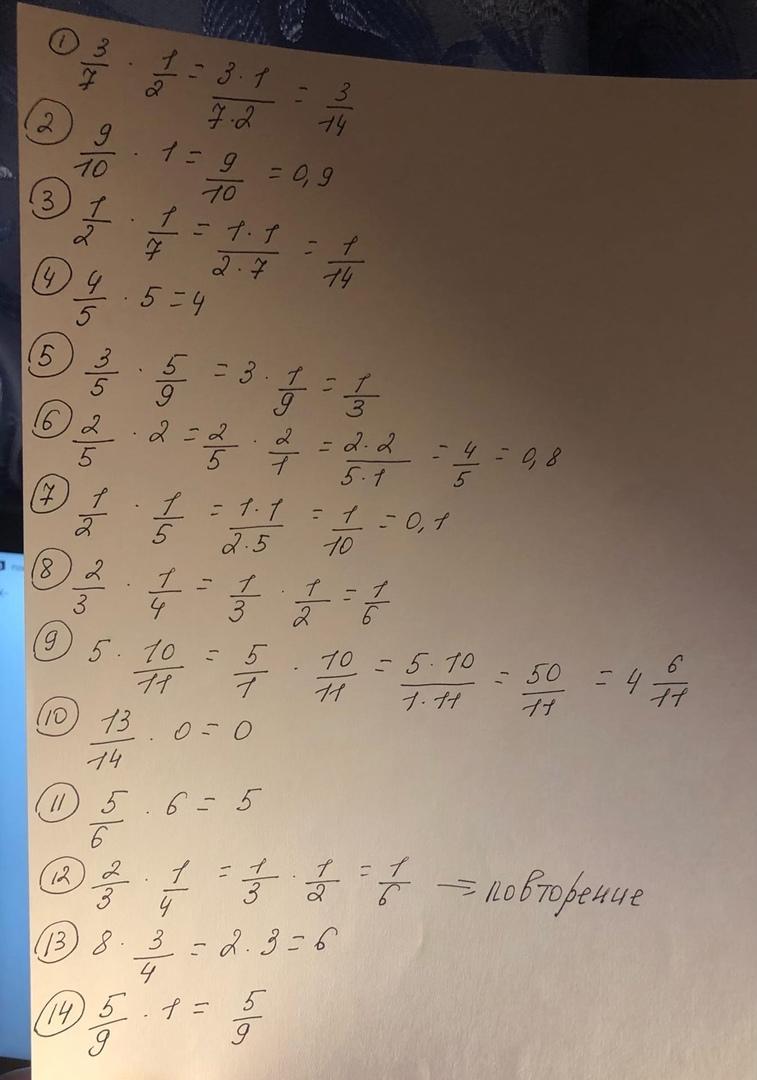 ① 3/7 · 1/2 = 3·1/7·2 = 3/14
② 9/10 · 1 = 9/10 = 0,9
③ 1/2 · 1/7 = 1·1/2·7 = 1/14
④ 4/5 · 5 = 4
⑤ 3/5 · 5/9 = 3 · 1/9 = 1/3
⑥ 2/5 · 2 = 2/5 · 2/1 = 2·2/5·1 = 4/5 = 0,8
⑦ 1/2 · 1/5 = 1·1/2·5 = 1/10 = 0,1
⑧ 2/3 · 1/4 = 1/3 · 1/2 = 1/6
⑨ 5 · 10/11 = 5/1 · 10/11 = 5·10/1·11 = 50/11 = 4 6/11
⑩ 13/14 · 0 = 0
⑪ 5/6 · 6 = 5
⑫ 2/3 · 1/4 = 1/3 · 1/2 = 1/6 => повторение
⑬ 8 · 3/4 = 2 · 3 = 6
⑭ 5/9 · 1 = 5/9